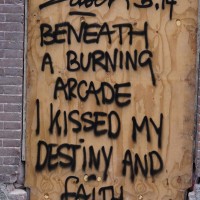 B.14
BENEATH
A BURNING
ARCADE
I KISSED MY
DESTINY AND
FAITH